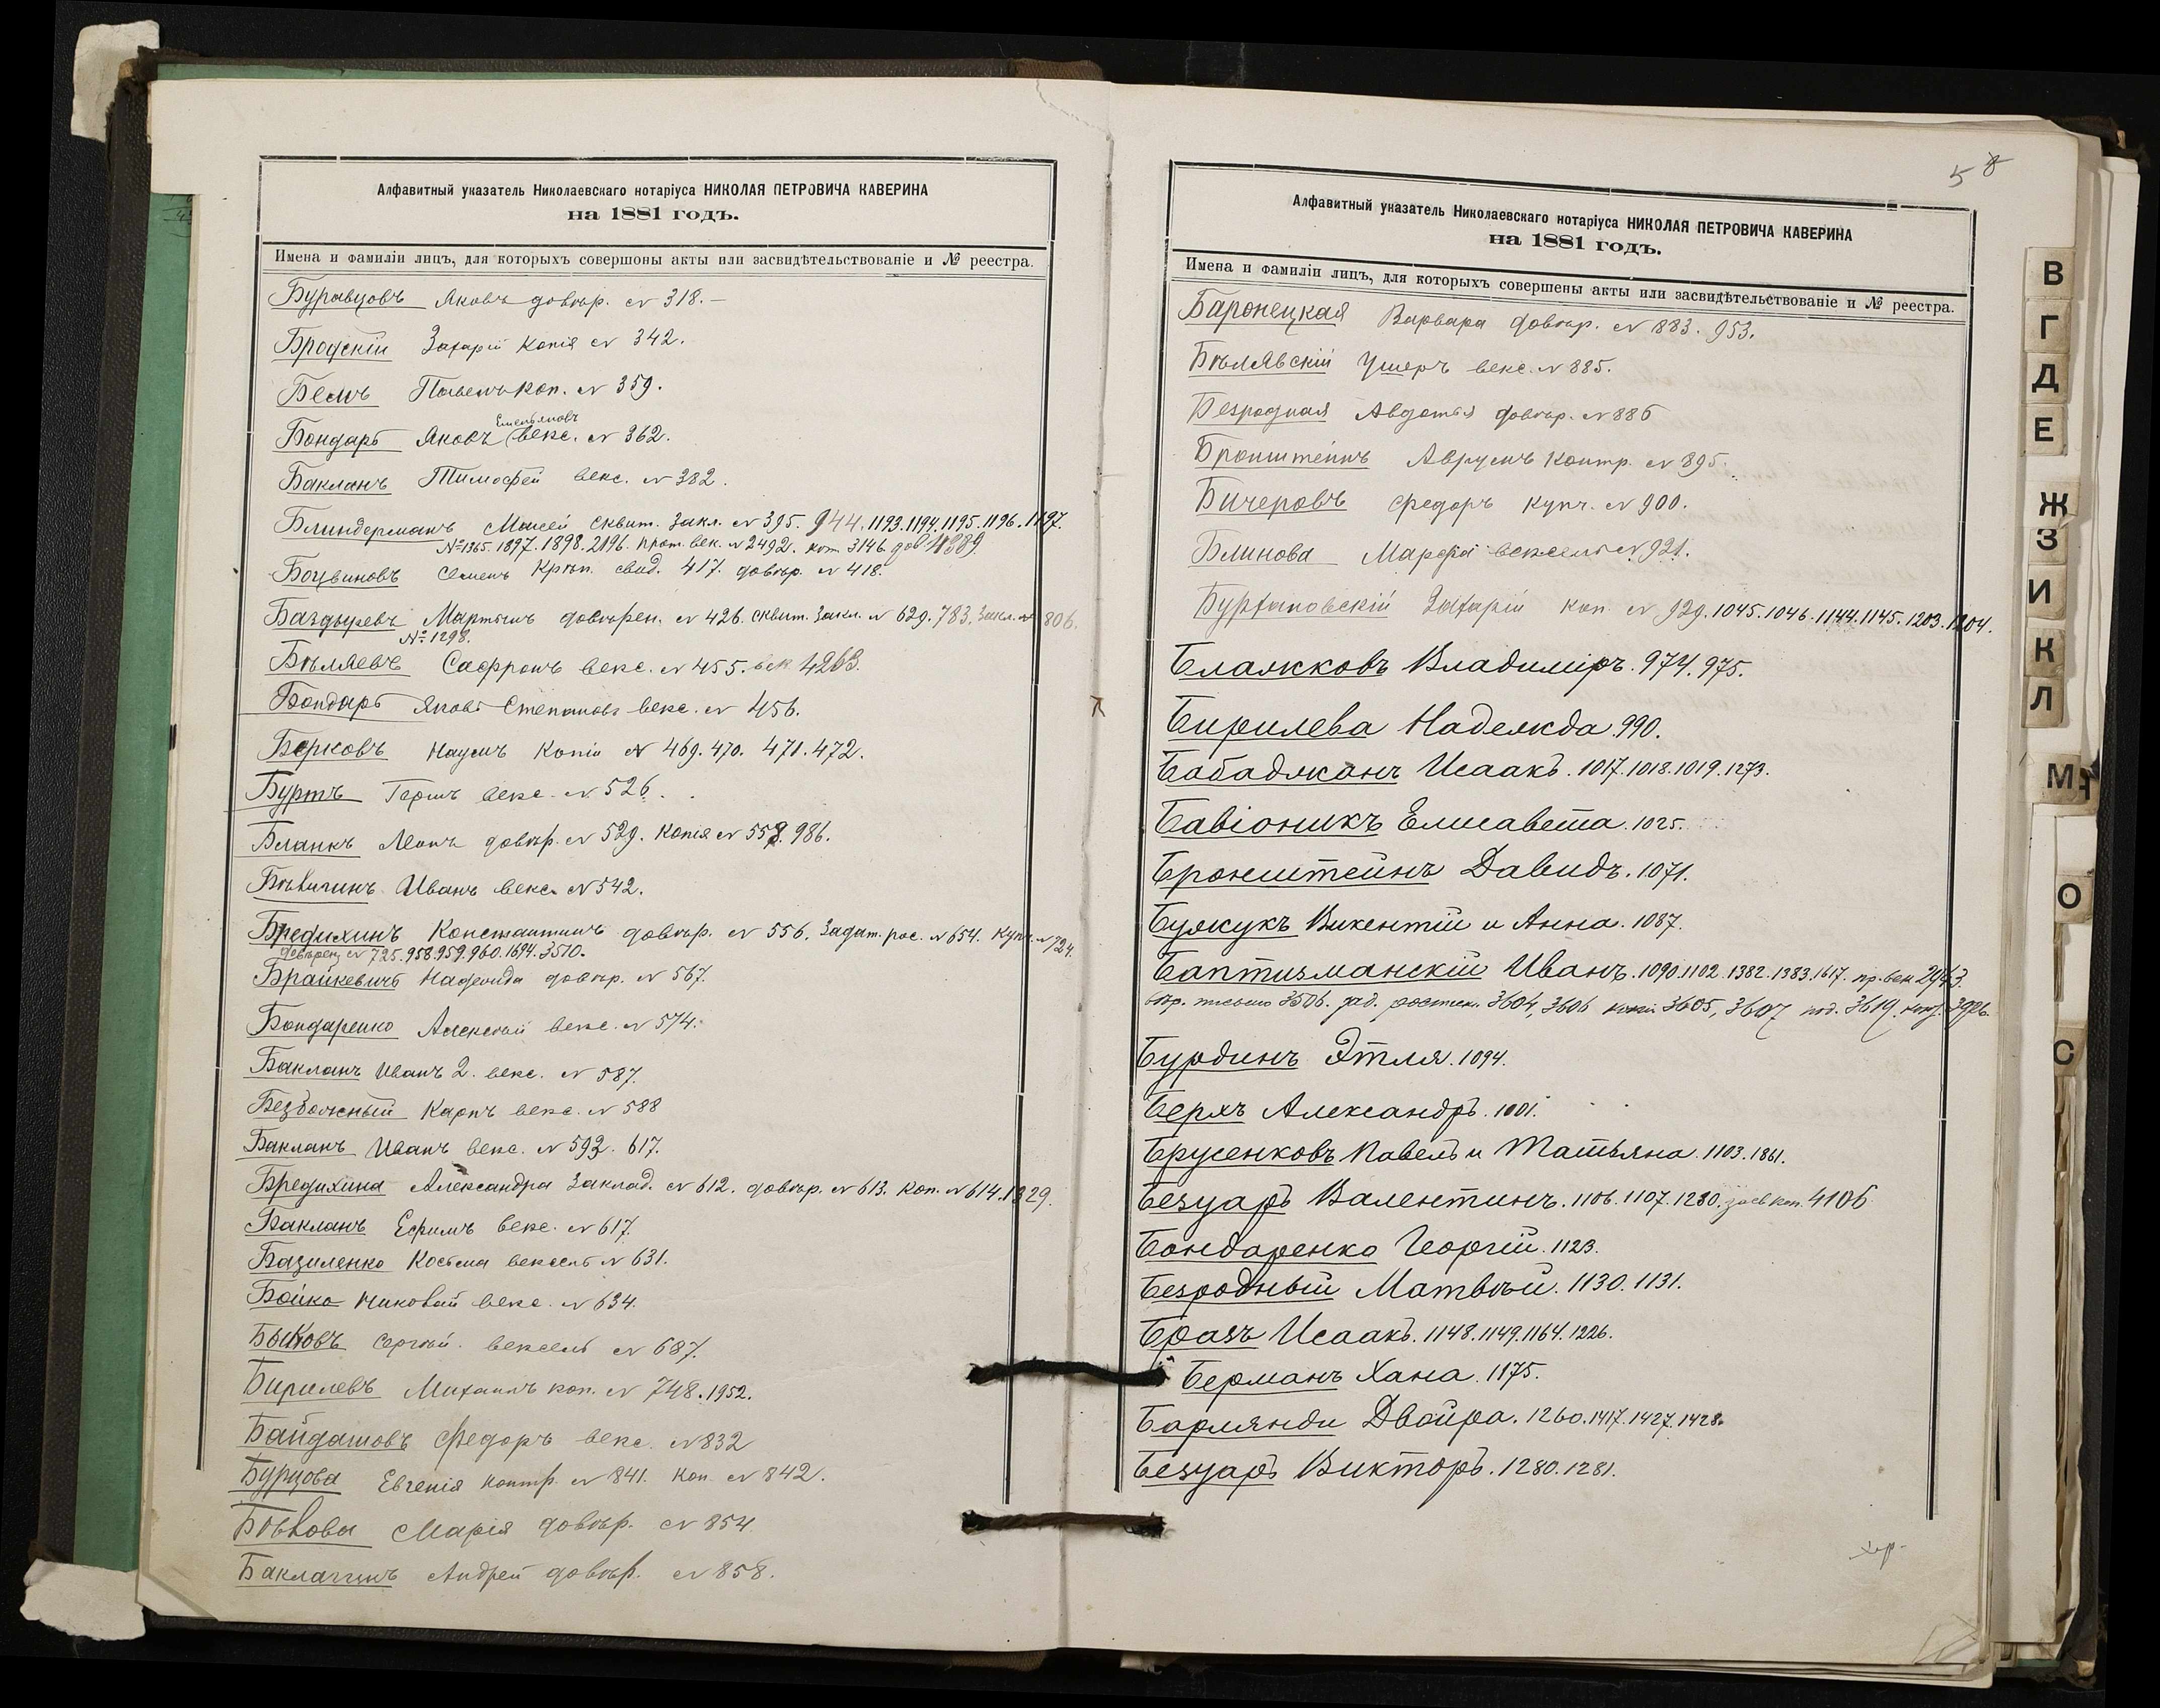 Алфавитный указатель Николаевскаго нотаріуса НИКОЛАЯ ПЕТРОВИЧА КАВЕРИНА
на 1881 годъ.
Имена и фамиліи лицъ, для которыхъ совершоны акты или засвидѣтельствованіе и № реестра.
Буравцовъ Яковъ довѣр. № 318.
Бродскій Захарій копія № 342.
Бемъ Павелъ коп. № 359.
Емельяновъ
Бондарь Яковъ векс. № 362.
Бакланъ Тимофей векс. № 382.
Блиндерманъ Моисей сквит. закл. № 395. 944. 1193. 1194. 1195. 1196. 1197.
№ 1365. 1897. 1898. 2196. прот. век. № 2492. 3146
Боцвиновъ Семенъ Крѣп. свид. 417. довѣр. № 418.
Баздыревъ Мартынъ довѣрен. № 426. сквит. закл. № 629. 783. закл. № 806.
№ 1298.
Бѣляевъ Сафронъ векс. № 455. век 4263.
Бондарь Яковъ Степановъ векс. № 456.
Берковъ Наумъ копіи № 469. 470. 471. 472.
Буртъ Гершъ векс. № 526.
Бланкъ Леонъ довѣр. № 529. копія № 558. 986.
Иванъ векс. № 542.
Бредихинъ Константинъ довѣр. № 556. Задат. рос. № 654. Купч. № 724.
довѣрен № 725. 958. 959. 960. 1694. 3510.
Брайкевичъ Надежда довѣр. № 567.
Бондаренко Алексѣй векс. № 574.
Бакланъ Иванъ 2. векс. № 587.
Безбожный Карпъ векс. № 588
Бакланъ Иванъ векс. № 593. 617.
Бредихина Александра Заклад. № 612. довѣр. № 613. коп. № 614. 1329.
Бакланъ Ефимъ векс. № 617.
Базиленко Косьма вексель № 631.
Бойко векс. № 634.
Быковъ Сергѣй. вексель № 687.
Бирилевъ Михаилъ коп. № 748. 1952.
Байдашовъ Федоръ векс. № 832
Бурцова Евгенія контр. № 841. коп. № 842.
Марія довѣр. № 854
Баклагинъ Андрей довѣр. № 858.
5
Алфавитный указатель Николаевскаго нотаріуса НИКОЛАЯ ПЕТРОВИЧА КАВЕРИНА
на 1881 годъ.
Имена и фамиліи лицъ, для которыхъ совершены акты или засвидѣтельствованіе и № реестра.
Баронецкая Варвара довѣр. № 883. 953.
Бѣлявскій Ушеръ векс. № 885.
Безродная Авдотья довѣр. № 886
Бронштейнъ Аврумъ контр. № 895.
Бичеровъ Федоръ купч. № 900.
Блинова Марфа вексель № 921.
Бурхановскій Захарій коп. № 929. 1045. 1046. 1144. 1145. 1203. 1204.
Блажковъ Владиміръ. 974. 975.
Бирилева Надежда. 990.
Бабаджанъ Исаакъ. 1017. 1018. 1019. 1273.
Бавіоникъ Елисавета. 1025.
Бронштейнъ Давидъ. 1071.
Бужукъ Викентій и Анна. 1087.
Баптизманскій Иванъ. 1090. 1102. 1382. 1383. 1617. пр. век 2943.
письмо 3506. зад. росписк. 3604, 3606 копіи 3605, 3607 3619.
Бурдинъ Этля. 1094.
Берхъ Александръ. 1001.
Брусенковъ Павелъ и Татьяна. 1103. 1861.
Безуаръ Валентинъ. 1106. 1107. 1280. 4106
Бондаренко Георгій. 1123.
Безродный Матвѣй. 1130. 1131.
Бразъ Исаакъ. 1148. 1149. 1164. 1226.
Берманъ Хана. 1175.
Барлянди Двойра. 1260. 1417. 1427. 1428.
Безуаръ Викторъ. 1280. 1281.
В
Г
Д
Е
Ж
З
И
К
Л
М
О
С